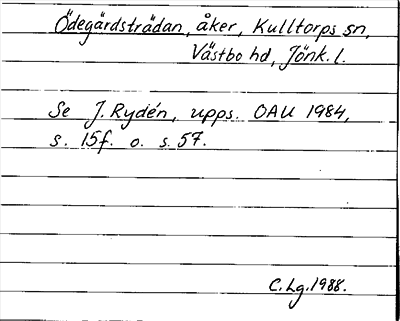 Ödegårdsträdan, åker, Kulltorps sn,
Västbo hd, Jönk. l.
Se J. Rydén, upps. OAU 1984,
s. 15f. o. s. 57.
C. Lg. 1988.